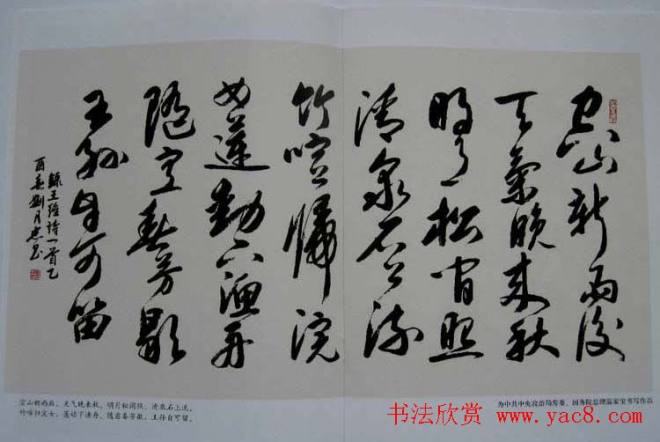 空山新雨後
天氣晚來秋
明月松間照
清泉石上流
竹喧歸浣
女蓮動下漁舟
隨意春芳歇
王孫自可留
錄王維詩一首乙
酉春劉月
空山新雨后，天气晚来秋，明月松间照，清泉石上流，
竹喧归浣女，莲动下渔舟，随意春芳歇，王孙自可留。
为中共中央政治局常委、国务院总理温家宝书写作品
书法欣赏 www.yac8.com